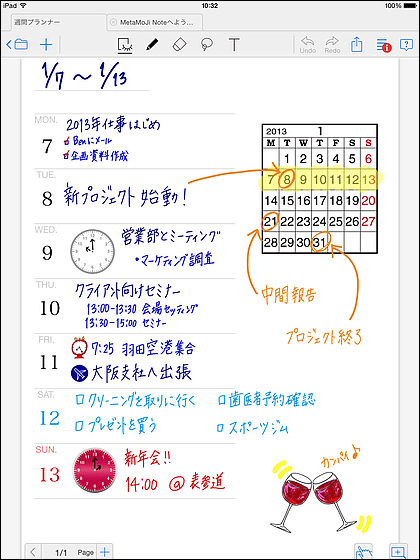 iPad
10:32
100%
週間プランナー
MetaMoJi Noteへよう…
Undo
Redo
1/7 〜 1/13
MON.
7
2013年仕事はじめ
Benにメール
企画資料作成
TUE.
8
新プロジェクト始動!
WED.
9
営業部とミーティング
・マーケティング調査
THU.
10
クライアント向けセミナー
13:00-13:30 会場セッティング
13:30-15:00 セミナー
FRI.
11
7:25 羽田空港集合
大阪支社へ出張
SAT.
12
クリーニングを取りに行く
歯医者予約確認
プレゼントを買う
スポーツジム
SUN.
13
新年会!!
14:00 @表参道
2013 1
M T W T F S S
1 2 3 4 5 6
7 8 9 10 11 12 13
14 15 16 17 18 19 20
21 22 23 24 25 26 27
28 29 30 31
中間報告
プロジェクト終了
カンパイ♪
1/1 Page